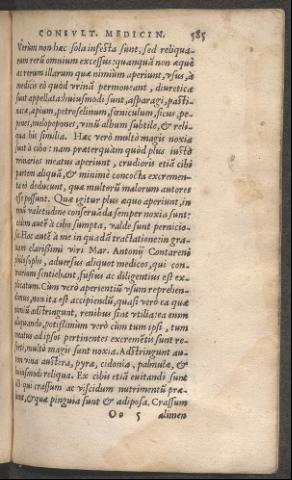 CONSVLT. MEDICIN. 585
Verùm non hæc sola infesta sunt, sed reliqua-
rum rerũ omnium excessus: quanquã non æquè
ac rerum illarum quæ nimium aperiunt, vsus, à
medicis eò quòd vrinã permoueant, diureticæ
sunt appellatæ: huiusmodi sunt, asparagi, pasti-
nacæ, apium, petroselinum, fœniculum, ficus, pe-
pones, melopepones, vinũ album subtile, & reli-
qua his similia. Hæc verò multò magis noxia
sunt à cibo: nam præterquàm quòd plus iusto
vrinarios meatus aperiunt, crudioris etiã cibi
partem aliquã, & minimè concocta excremen-
ta eò deducunt, quæ multorũ malorum autores
esse possunt. Quæ igitur plus æquo aperiunt, in
omni valetudine conseruãda semper noxia sunt:
cùm autẽ à cibo sumpta, valde sunt pernicio-
sa. Hoc autẽ à me in quadã tractatione in gra-
tiam clarissimi viri Mar. Antonij Contareni
philosophi, aduersus aliquot medicos, qui con-
trarium sentiebant, fusius ac diligentius est ex-
plicatum. Cùm verò aperientiũ vsum reprehen-
dimus, non ita est accipiendũ, quasi verò ea quæ
nimiũ adstringunt, renibus sint vtilia: ea enim
aliquando, potissimum verò cùm tum ipsi, tum
meatus ad ipsos pertinentes excremẽtis sunt re-
ferti, multò magis sunt noxia. Adstringunt au-
tem vina austera, pyra, cidonia, palmulæ, &
huiusmodi reliqua. Ex cibis etiã euitandi sunt
ij qui crassum ac viscidum nutrimentũ præ-
bent, & quæ pinguia sunt & adiposa. Crassum
Oo 5 alimen